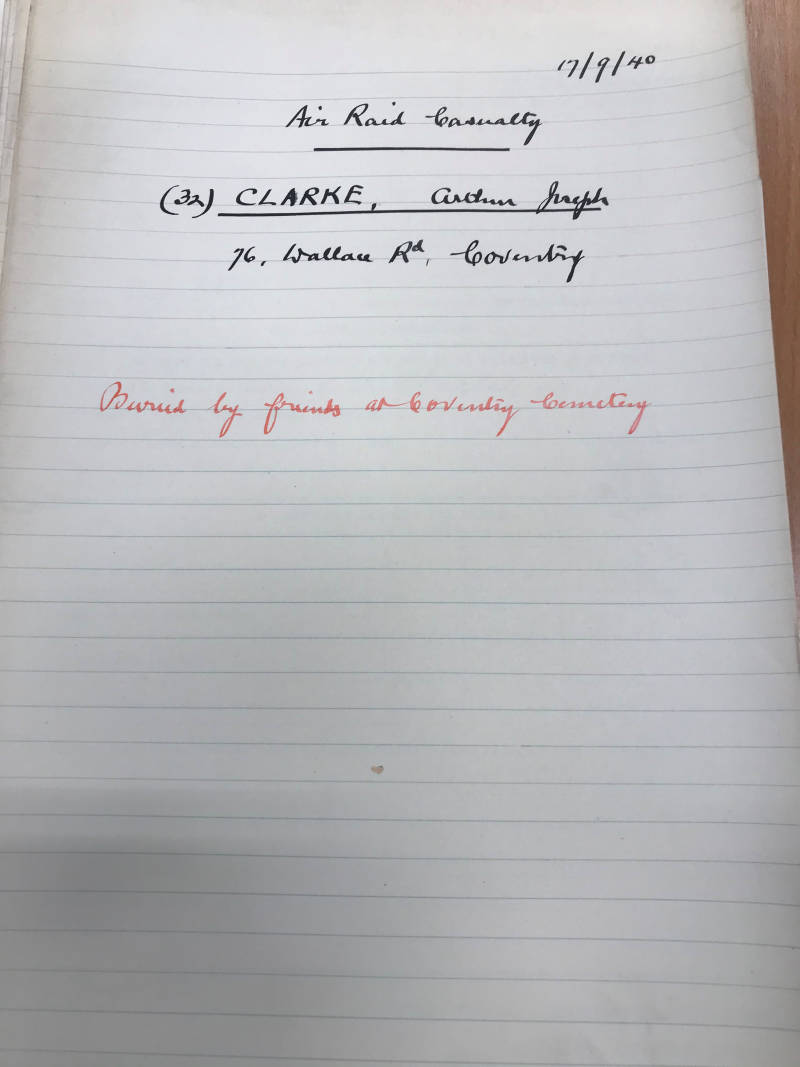 17/9/40
Air Raid Casualty
(32) CLARKE, Arthur Joseph
76, Wallace Rd, Coventry
Buried by friends at Coventry Cemetery